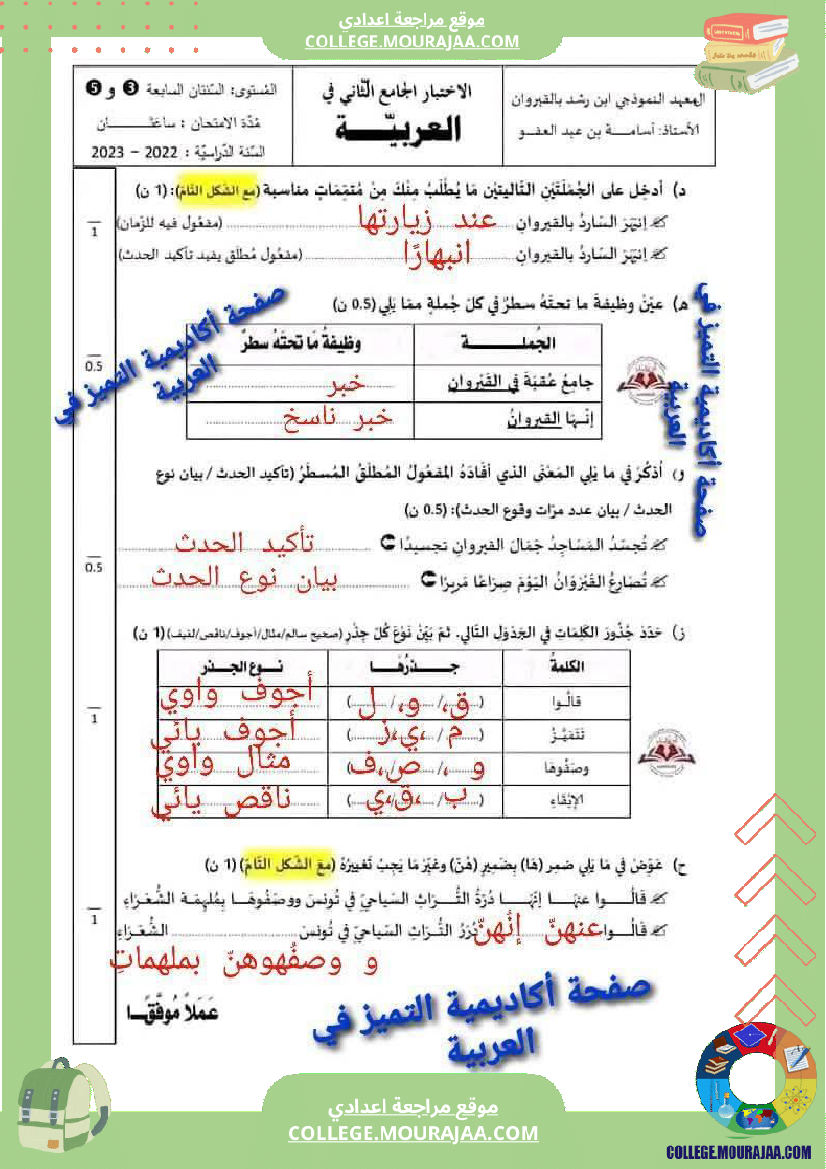 موقع مراجعة اعدادي
COLLEGE.MOURAJAA.COM
المعهد النموذجي ابن رشد بالقيروان
الأستاذ: أسامــة بن عبد العفو
الاختبار الجامع الثّاني في
العربيّــة
المستوى: السّنتان السابعة 3 و 5
مُدّة الامتحان : ساعتــان
السنة الدّراسيّة : 2022 – 2023
د) أدخِل على الجُمْلَتَيْنِ التّاليتيْن مَا يُطْلَبُ مِنْكَ مِنْ مُتمِّمَاتٍ مناسبة (مع الشّكل التّامّ): (1 ن)
1
اِنبَهَرَ السّارِدُ بالقيروانِ عند زيارتها (مفعُول فيه للزّمان)
اِنبَهَرَ السّارِدُ بالقيروانِ انبهارًا (مفعُول مُطلَق يفيد تأكيد الحدث)
هـ) عيّنْ وظيفةَ ما تحتَهُ سطرٌ في كلّ جُملةٍ ممّا يَلِي (0.5 ن)
0.5
الجُملــــة
وظيفةُ مَا تحْتَهُ سطرٌ
جامِعُ عُقبَةَ في القَيْروان
خبر
إنّـها القيروانُ
خبر ناسخ
و) اُذكُرْ في ما يَلِي المَعْنَى الذي أفَادَهُ المَفعُولُ المُطلَقُ المُسطَّرُ (تأكيد الحدث / بيان نوع
الحدث / بيان عدد مرّات وقوع الحدث): (0.5 ن)
0.5
تُجسّدُ المَسَاجِدُ جَمَالَ القيروانِ تجسيدًا تأكيد الحدث
تُصَارِعُ القَيْرَوَانُ اليَوْمَ صِرَاعًا مَرِيرًا بيان نوع الحدث
ز) حَدّدْ جُذُورَ الكَلِمَاتِ في الجَدْوَلِ التّالِي. ثمّ بَيّنْ نَوْعَ كُلّ جِذْرٍ (صحيح سالم/مثال/أجوف/ناقص/لفيف) (1 ن)
1
الكلمةُ
جــذرُهَـا
نــوع الجــذر
قالُـوا
(ق، / و، / ل)
أجوف واوي
تَتَميّـزُ
(م / ،ي، / ز)
أجوف يائي
وصَفُوهَا
(و / ، ص، / ف)
مثال واوي
الإبْقَاءِ
(ب / ،ق، / ي)
ناقص يائي
ح) عَوّضْ في مَا يَلِي ضمير (هَا) بِضَمِيرِ (هُنّ) وغيّرْ مَا يَجِبُ تَغييرُهُ (مَعَ الشّكل التّامّ) (1 ن)
1
قالُــوا عنهَـا إنّهَـا دُرّةُ التُّــرَاثِ السّياحيّ في تُونسَ ووصَفُوهَـا بِمُلهِمَة الشُّعَـرَاءِ
قالُــوا عنهنّ إنّهنّ دُرَرُ التُّــرَاثِ السّياحيّ في تُونسَ الشُّعَـرَاءِ
و وصفُوهنّ بملهماتِ
عَمَلاً مُوفّقًــا
صفحة أكاديمية التميز في
العربية
صفحة أكاديمية التميز في
العربية
صفحة أكاديمية التميز في
العربية
موقع مراجعة اعدادي
COLLEGE.MOURAJAA.COM
COLLEGE.MOURAJAA.COM